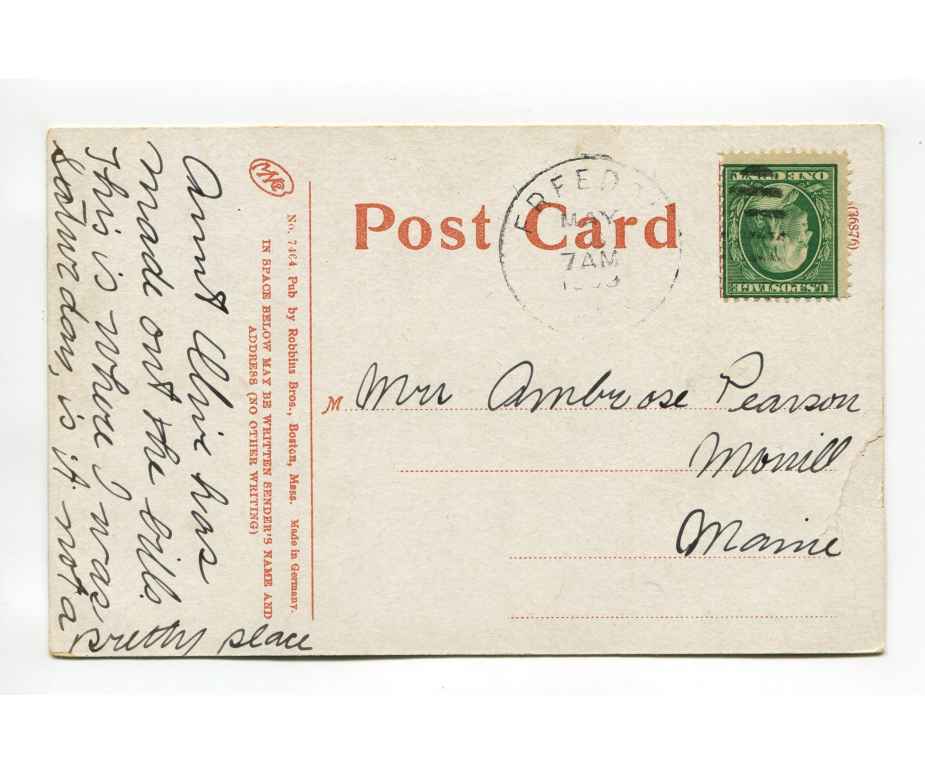 Post Card
MAY
7AM
U.S.POSTAGE
ONE CENT
(16876)
No. 7464 Pub by Robbins Bros., Boston, Mass. Made in Germany.
IN SPACE BELOW MAY BE WRITTEN SENDER'S NAME AND
ADDRESS (NO OTHER WRITING)
Aunt has
made out the bill.
This is where I was
Saturday, is it not a
pretty place
M Mrs Ambrose Pearson
Morrill
Maine